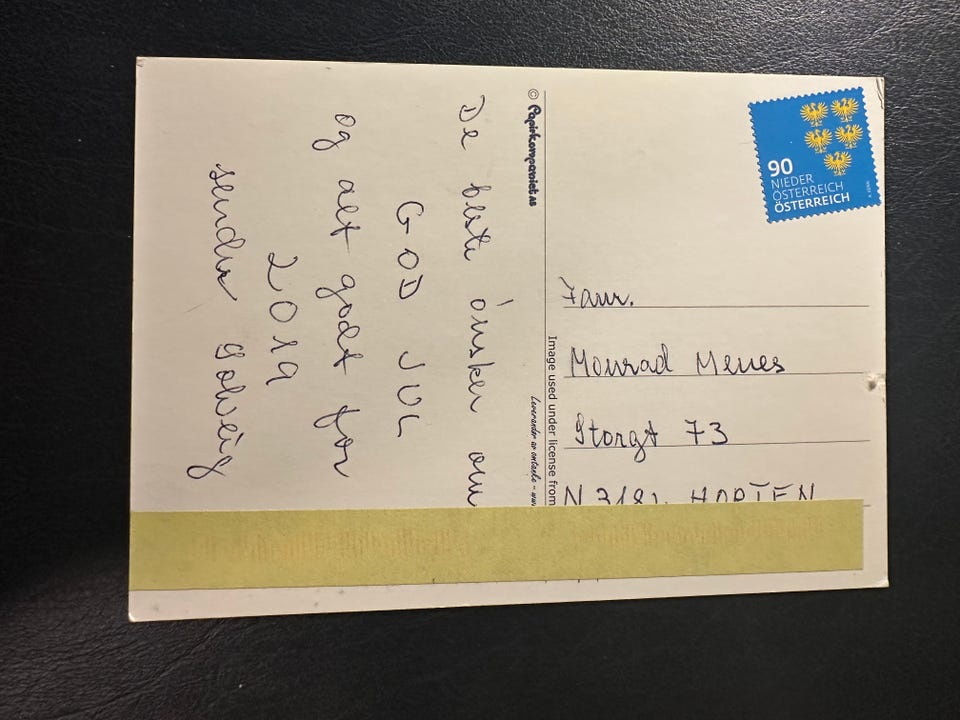 De beste ønsker om
GOD JUL
og alt godt for
2019
sender Solveig
© Papirkompaniet AS
Image used under license from
90
NIEDER
ÖSTERREICH
ÖSTERREICH
Fam.
Monrad Menes
Storgt 73
HORTEN